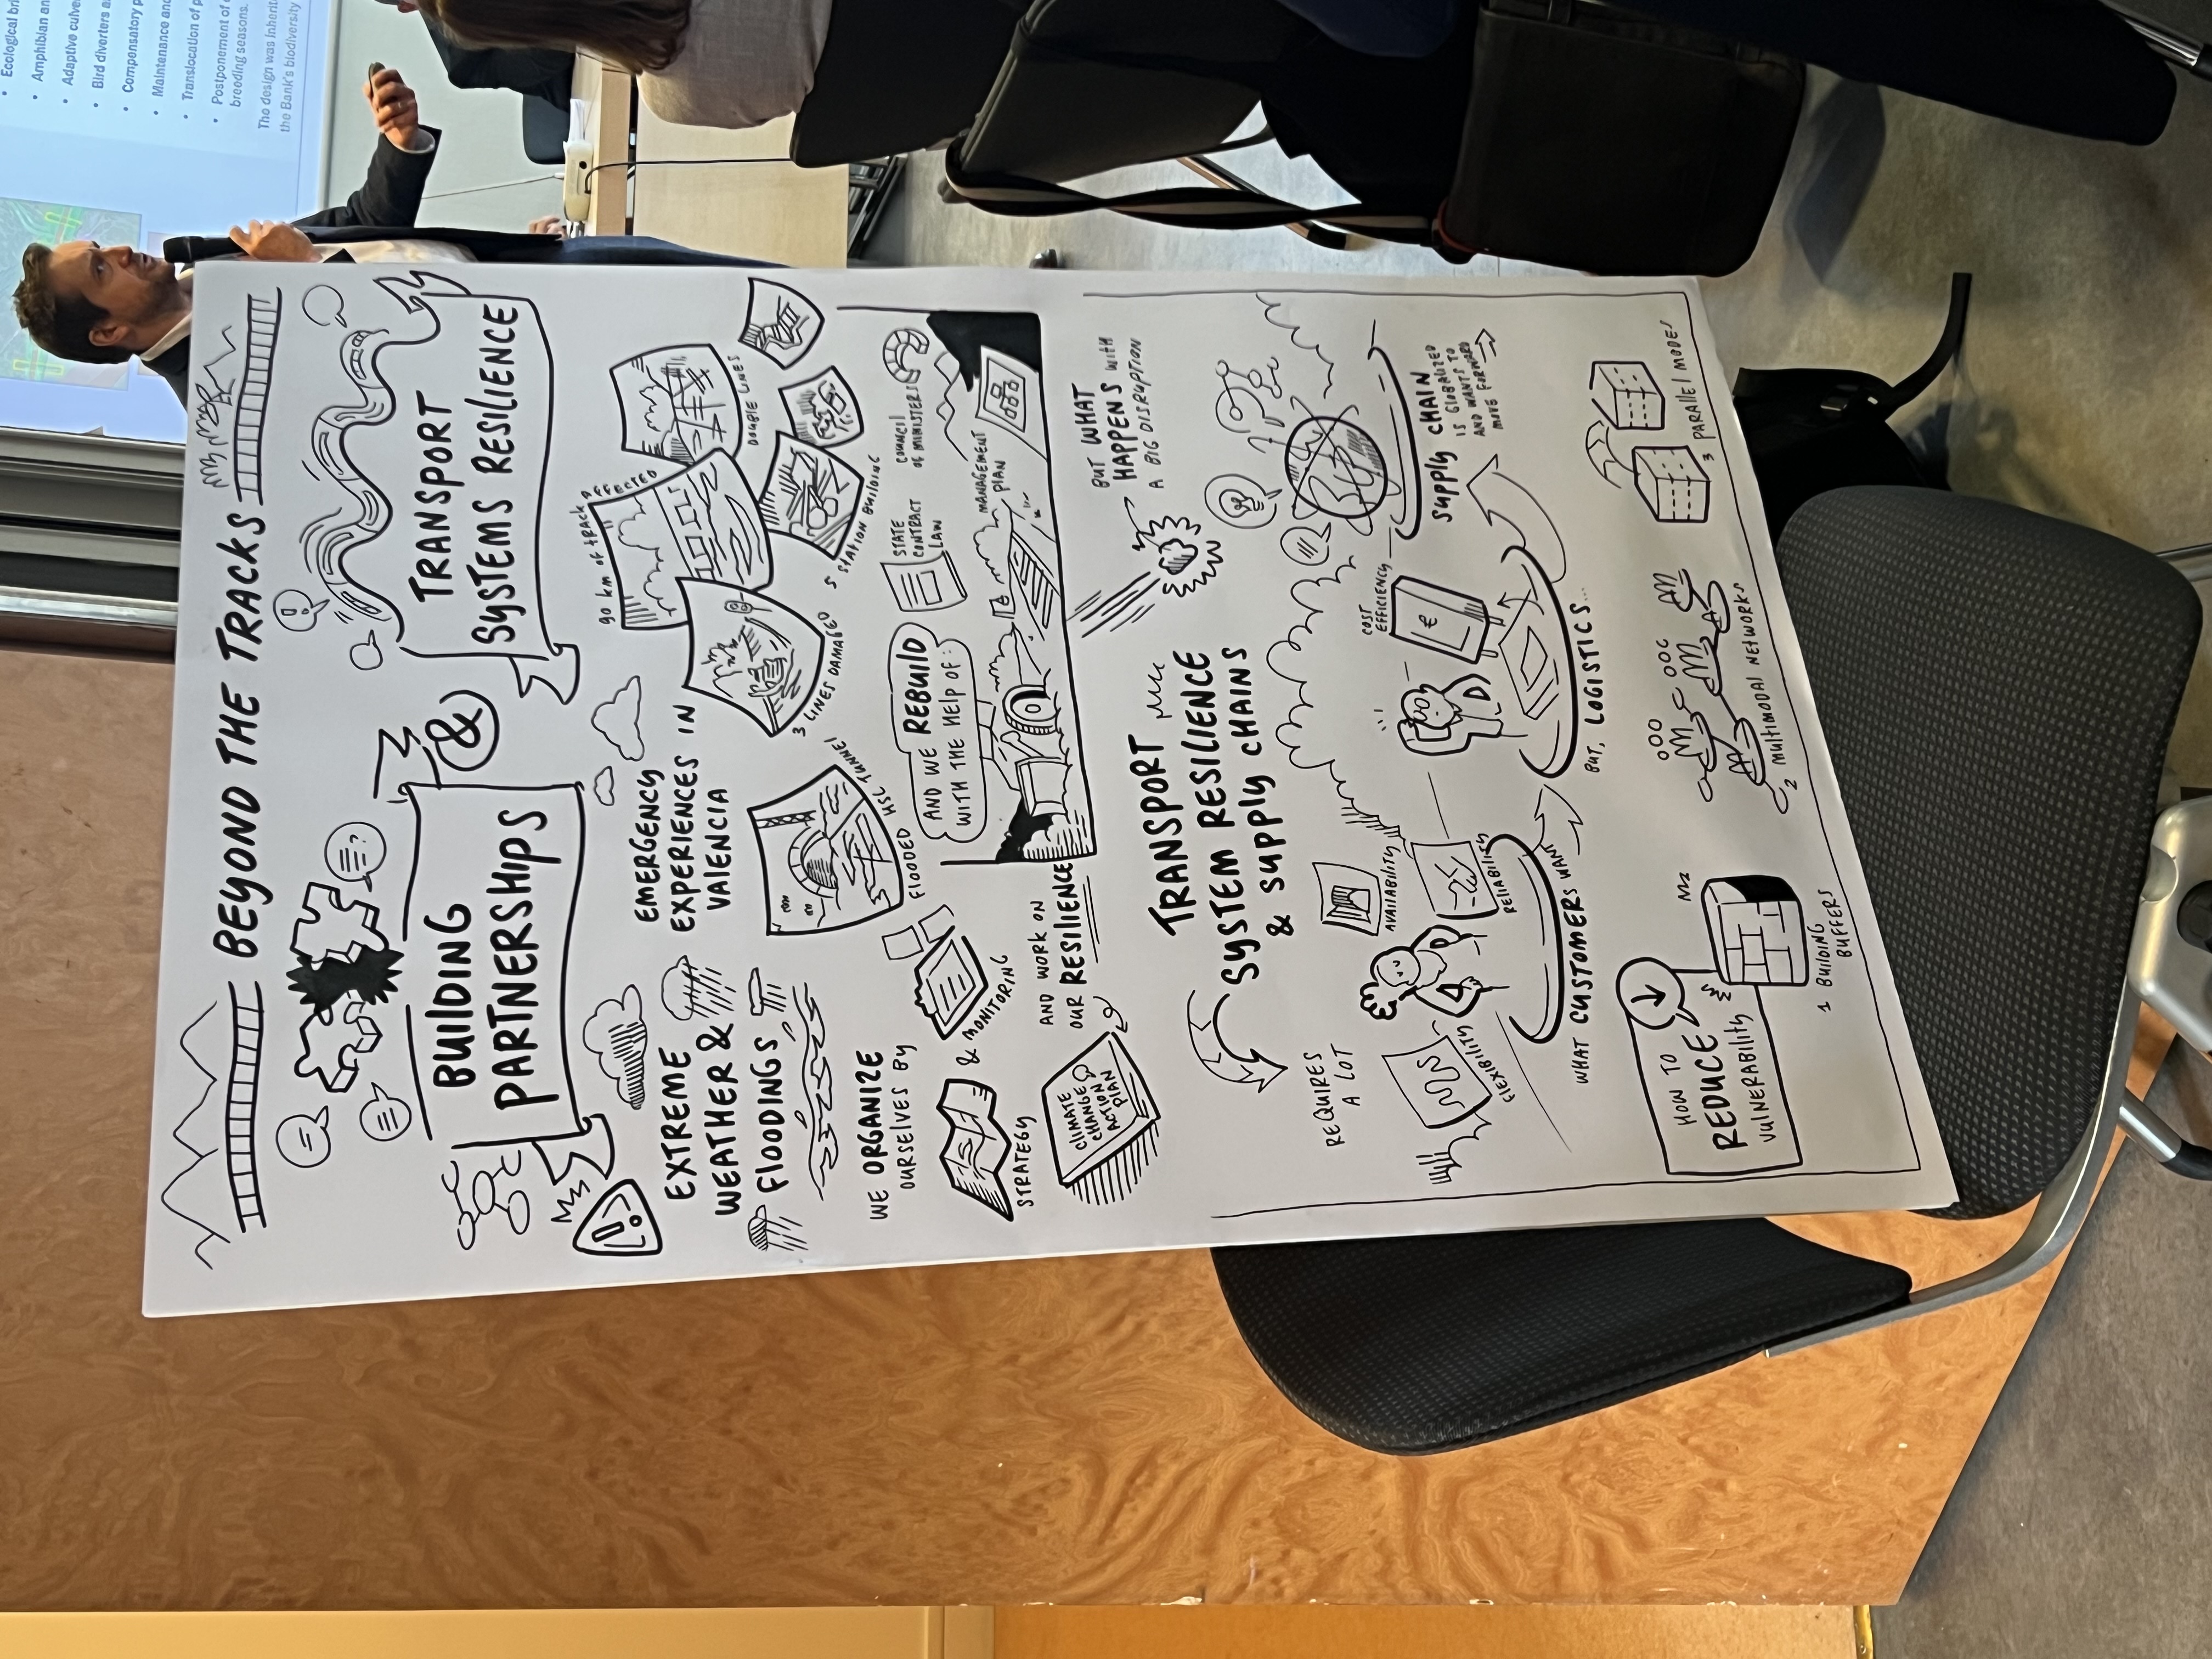 • Ecological bri
• Amphibian an
• Adaptive culve
• Bird diverters a
• Compensatory p
• Maintenance and
• Translocation of p
• Postponement of
breeding seasons.
The design was inherit
the Bank's biodiversity
BEYOND THE TRACKS
BUILDING
PARTNERSHIPS
&
TRANSPORT
SYSTEMS RESILIENCE
EXTREME
WEATHER &
FLOODINGS
EMERGENCY
EXPERIENCES IN
VALENCIA
FLOODED HSL TUNNEL
3 LINES DAMAGED
90 KM OF TRACK AFFECTED
DOUBLE LINES
5 STATION BUILDING
WE ORGANIZE
OURSELVES BY
STRATEGY
& MONITORING
CLIMATE
CHANGE
ACTION
PLAN
AND WORK ON
OUR RESILIENCE
AND WE REBUILD
WITH THE HELP OF:
STATE
CONTRACT
LAW
COUNCIL
OF MINISTERS
MANAGEMENT
PLAN
TRANSPORT
SYSTEM RESILIENCE
& SUPPLY CHAINS
BUT WHAT
HAPPENS WITH
A BIG DISRUPTION
REQUIRES
A LOT
FLEXIBILITY
AVAILABILITY
RELIABILITY
WHAT CUSTOMERS WANT
COST
EFFICIENCY
€
BUT, LOGISTICS...
SUPPLY CHAIN
IS GLOBALIZED
AND WANTS TO
MOVE FORWARD
HOW TO
REDUCE
VULNERABILITY
1 BUILDING
BUFFERS
2 MULTIMODAL NETWORKS
3 PARALLEL MODES